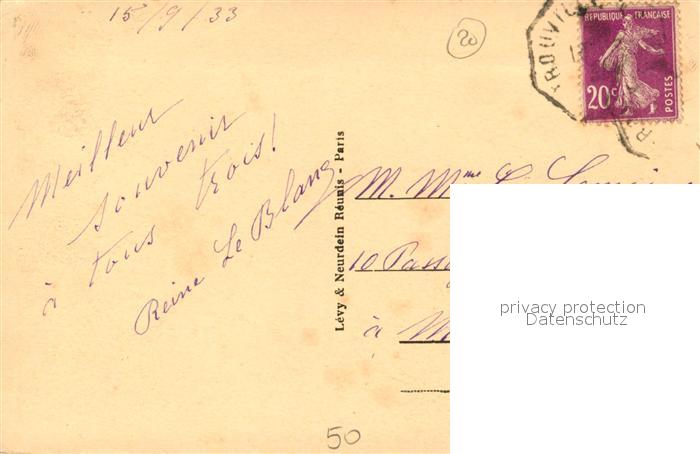 15/9/33
20
TROUVILLE
RÉPUBLIQUE FRANÇAISE
20c
POSTES
Meilleur
souvenir
à tous trois!
Reine Le Blanc
Lévy & Neurdein Réunis - Paris
M. Mme
10 Pass
à M
privacy protection
Datenschutz
50